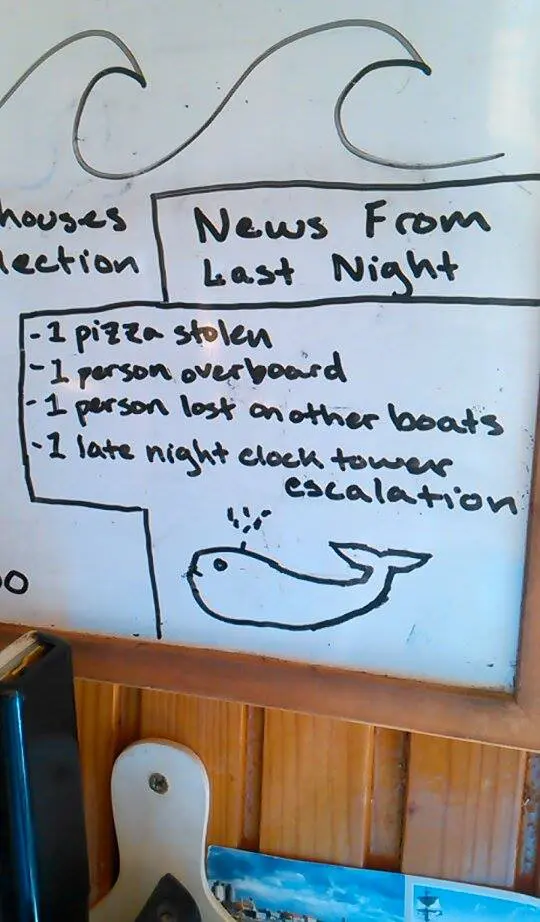 houses
lection
News From
Last Night
-1 pizza stolen
-1 person overboard
-1 person lost on other boats
-1 late night clock tower
escalation